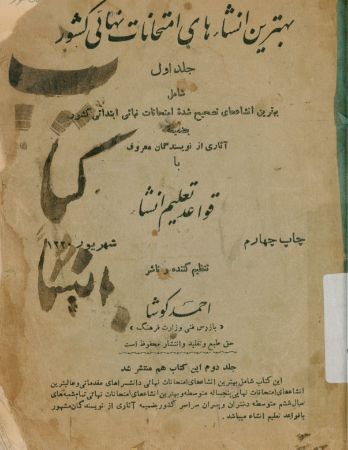 بهترین انشاءهای امتحانات نهائی کشور
جلد اول
شامل
بهترین انشاءهای تصحیح شدهٔ امتحانات نهائی ابتدائی کشور
بضمیمه
آثاری از نویسندگان معروف
با
قواعد تعلیم انشاء
چاپ چهارم
شهریور ۱۳۲۰
تنظیم کننده و ناشر
احمد کوشا
« بازرس فنی وزارت فرهنگ »
حق طبع و تقلید و انتشار محفوظ است
جلد دوم این کتاب هم منتشر شد
این کتاب شامل بهترین انشاءهای امتحانات نهائی دانشسراهای مقدماتی و عالیترین
انشاءهای امتحانات نهایی پنجساله متوسطه و بهترین انشاءهای امتحانات نهائی تمام شعبه‌های
سال ششم متوسطه دختران و پسران مدارس کشور بضمیمه آثاری از نویسندگان مشهور
با قواعد تعلیم انشاء میباشد.
کتاب
انشاء